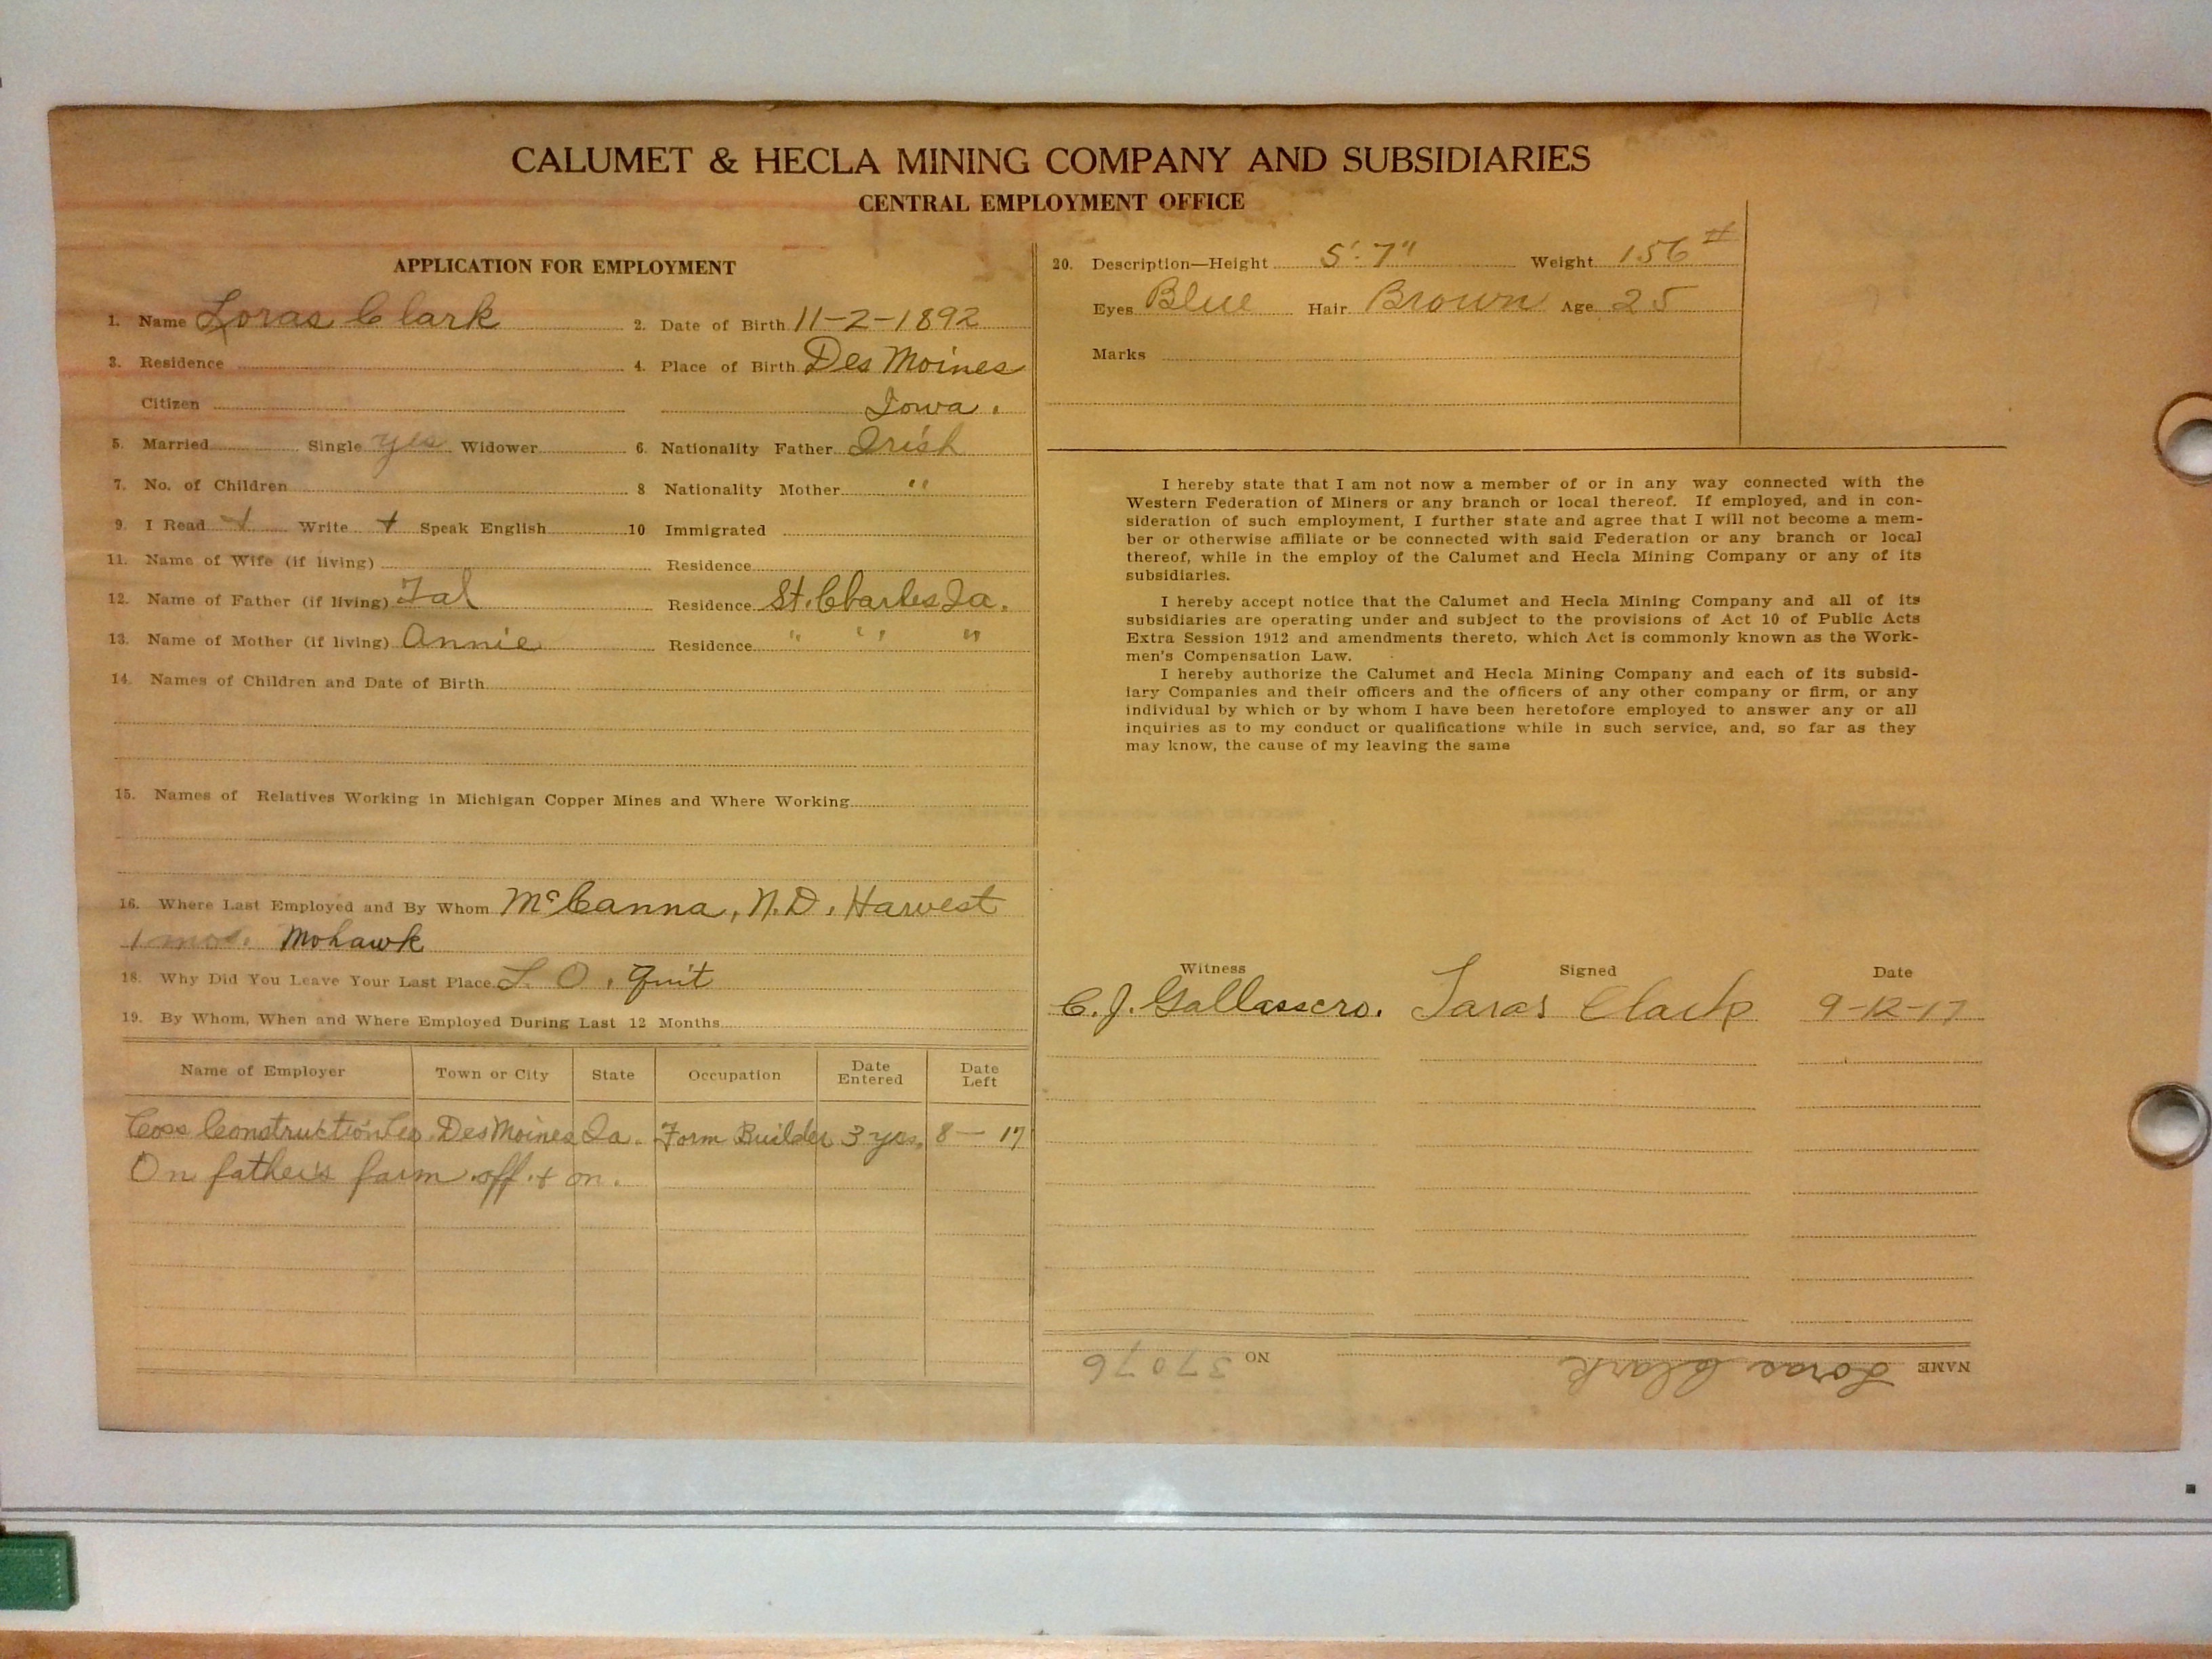 CALUMET & HECLA MINING COMPANY AND SUBSIDIARIES
CENTRAL EMPLOYMENT OFFICE
APPLICATION FOR EMPLOYMENT
1. Name Loras Clark 2. Date of Birth 11-2-1892
3. Residence 4. Place of Birth Des Moines
Citizen Iowa.
5. Married Single yes Widower 6. Nationality Father Irish
7. No. of Children 8 Nationality Mother " "
9. I Read + Write + Speak English 10 Immigrated
11. Name of Wife (if living) Residence
12. Name of Father (if living) Tal Residence St. Charles Ia.
13. Name of Mother (if living) Annie Residence " " "
14. Names of Children and Date of Birth
15. Names of Relatives Working in Michigan Copper Mines and Where Working
16. Where Last Employed and By Whom McCanna, N.D. Harvest
1 mos. Mohawk
18. Why Did You Leave Your Last Place L. O. quit
19. By Whom, When and Where Employed During Last 12 Months
Name of Employer Town or City State Occupation Date Entered Date Left
Coss Construction Co. Des Moines Ia. Form Builder 3 yrs. 8 — 17
On father's farm off + on.
20. Description—Height 5' 7" Weight 156 #
Eyes Blue Hair Brown Age 25
Marks
I hereby state that I am not now a member of or in any way connected with the
Western Federation of Miners or any branch or local thereof. If employed, and in con-
sideration of such employment, I further state and agree that I will not become a mem-
ber or otherwise affiliate or be connected with said Federation or any branch or local
thereof, while in the employ of the Calumet and Hecla Mining Company or any of its
subsidiaries.
I hereby accept notice that the Calumet and Hecla Mining Company and all of its
subsidiaries are operating under and subject to the provisions of Act 10 of Public Acts
Extra Session 1912 and amendments thereto, which Act is commonly known as the Work-
men's Compensation Law.
I hereby authorize the Calumet and Hecla Mining Company and each of its subsid-
iary Companies and their officers and the officers of any other company or firm, or any
individual by which or by whom I have been heretofore employed to answer any or all
inquiries as to my conduct or qualifications while in such service, and, so far as they
may know, the cause of my leaving the same
Witness Signed Date
C. J. Gallassero. Laras Clark 9-12-17
NAME Loras Clark NO 37076